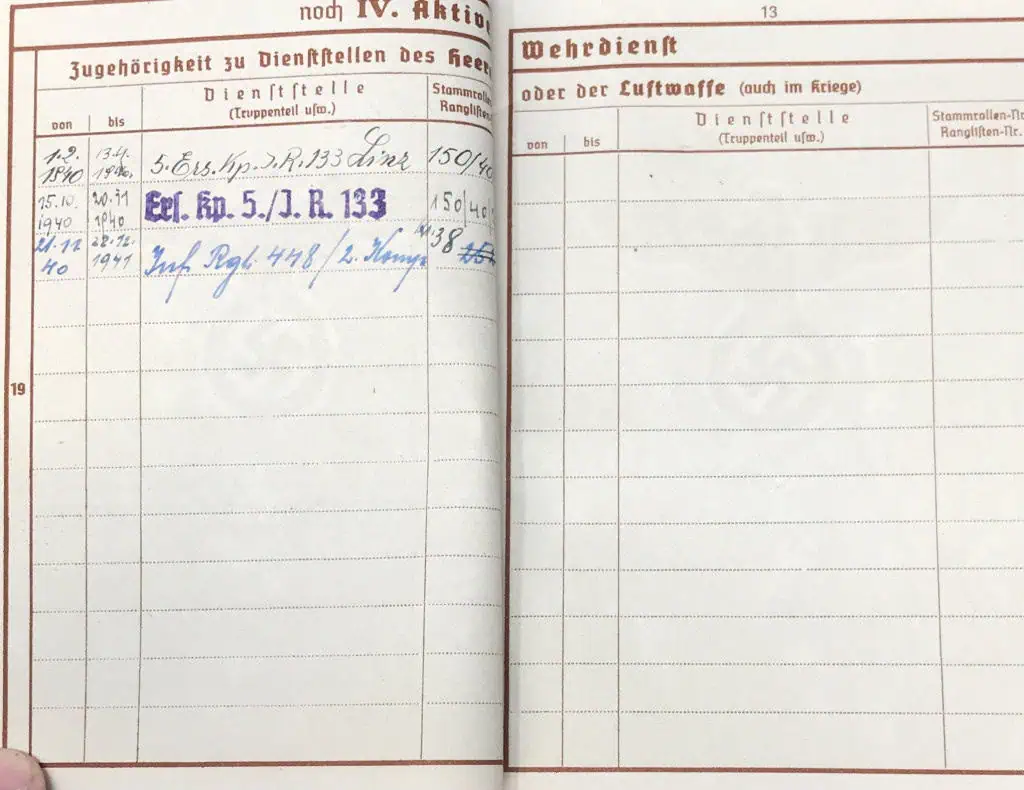 noch IV. Aktive
Zugehörigkeit zu Dienststellen des Heer
von
bis
Dienststelle
(Truppenteil usw.)
Stammrolle
Ranglisten
1.2.
1940
13.4.
1940.
5. Ers. Kp. J. R. 133 Linz
150/40
15.10.
1940
20.11
1940
Ers. Kp. 5./J. R. 133
150/40
21.12
40
28.12.
1941
Inf Rgt. 448/2. Komp
38
19
13
Wehrdienst
oder der Luftwaffe (auch im Kriege)
von
bis
Dienststelle
(Truppenteil usw.)
Stammrollen-Nr
Ranglisten-Nr.